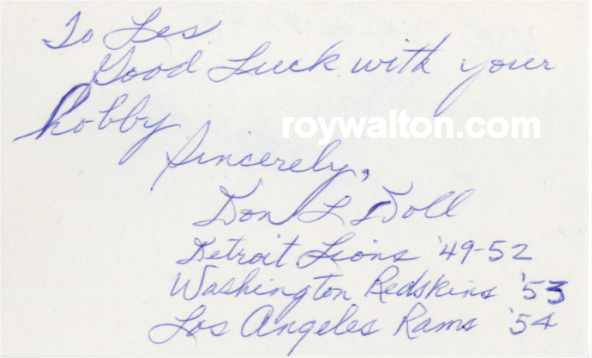 To Les
Good Luck with your
hobby
roywalton.com
Sincerely,
Don L Doll
Detroit Lions '49-52
Washington Redskins '53
Los Angeles Rams '54